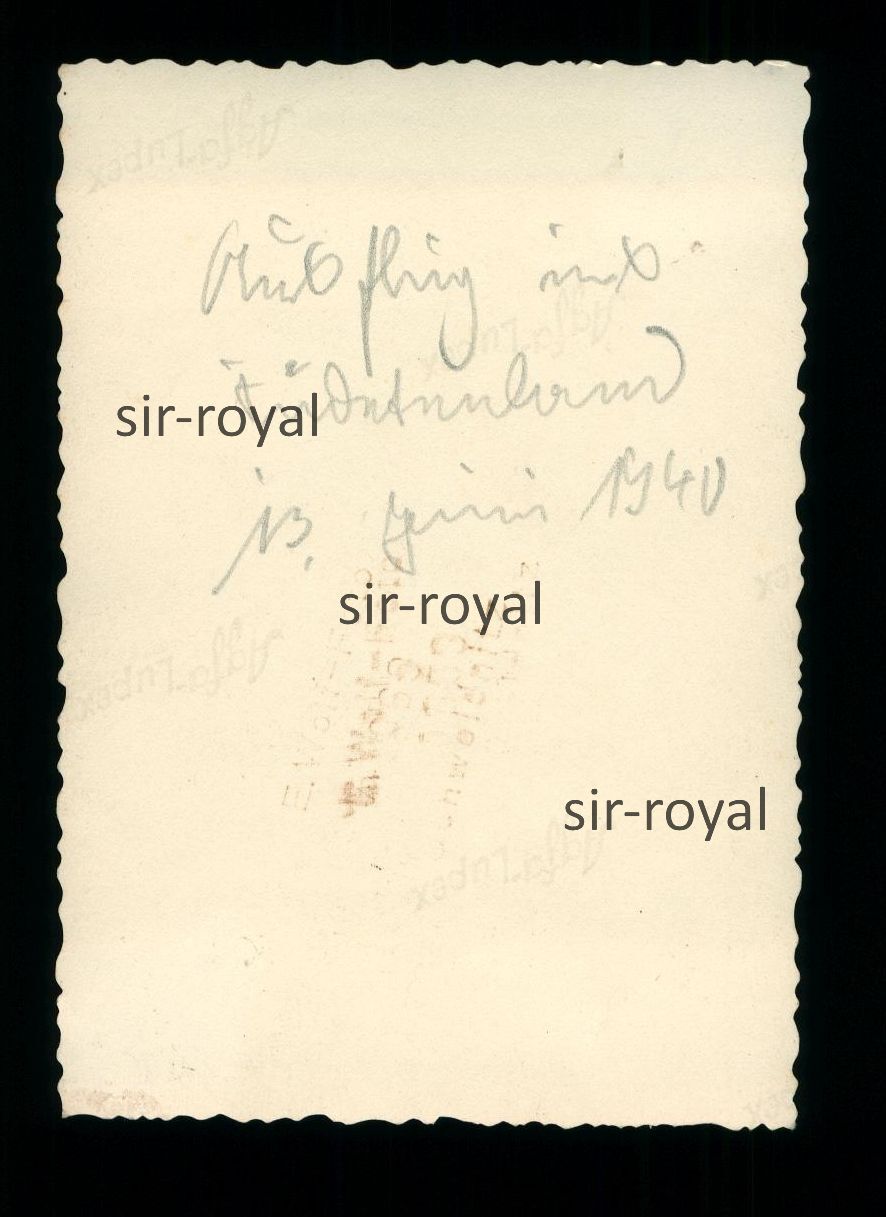 Agfa-Lupex
Ausflug ins
Agfa-Lupex
Sudetenland
sir-royal
13. Juni 1940
sir-royal
Agfa-Lupex
sir-royal
Agfa-Lupex